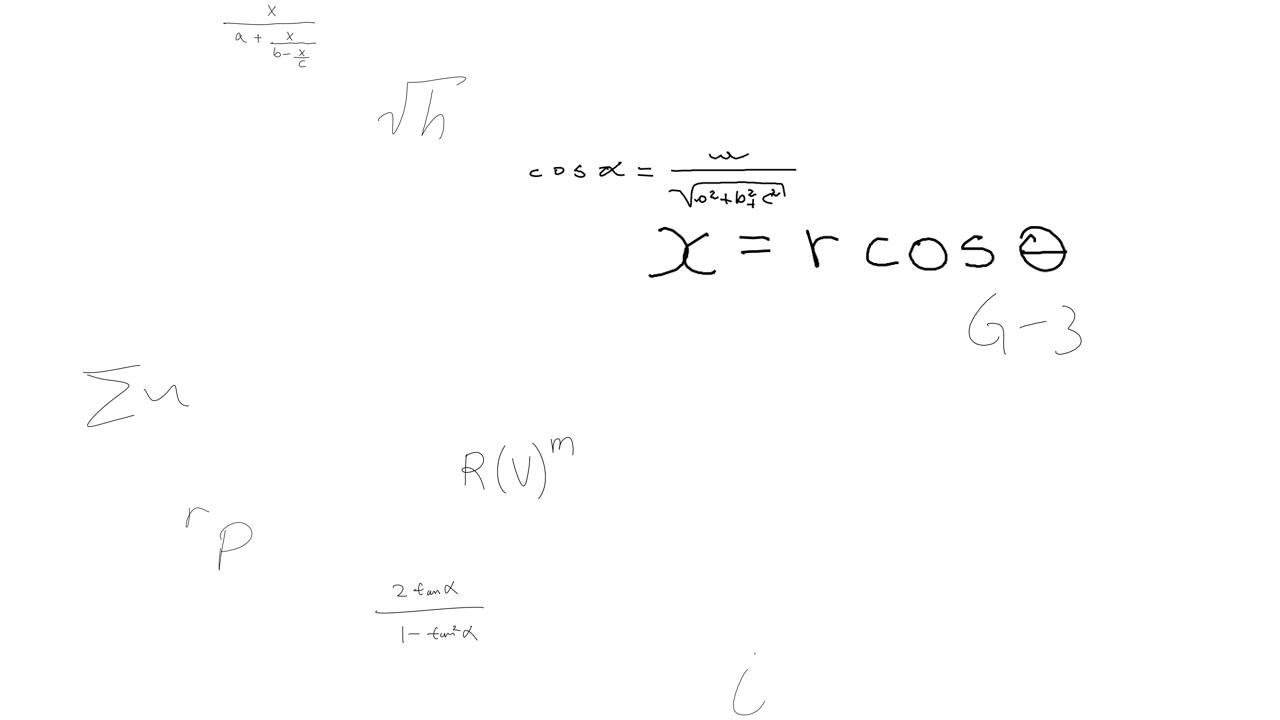 \frac{x}{a+\frac{x}{b-\frac{x}{c}}}
\sqrt{h}
\cos\alpha=\frac{a}{\sqrt{a^2+b^2+c^2}}
x=r\cos\theta
G-3
\sum u
R(V)^m
^r p
\frac{2\tan\alpha}{1-\tan^2\alpha}
i